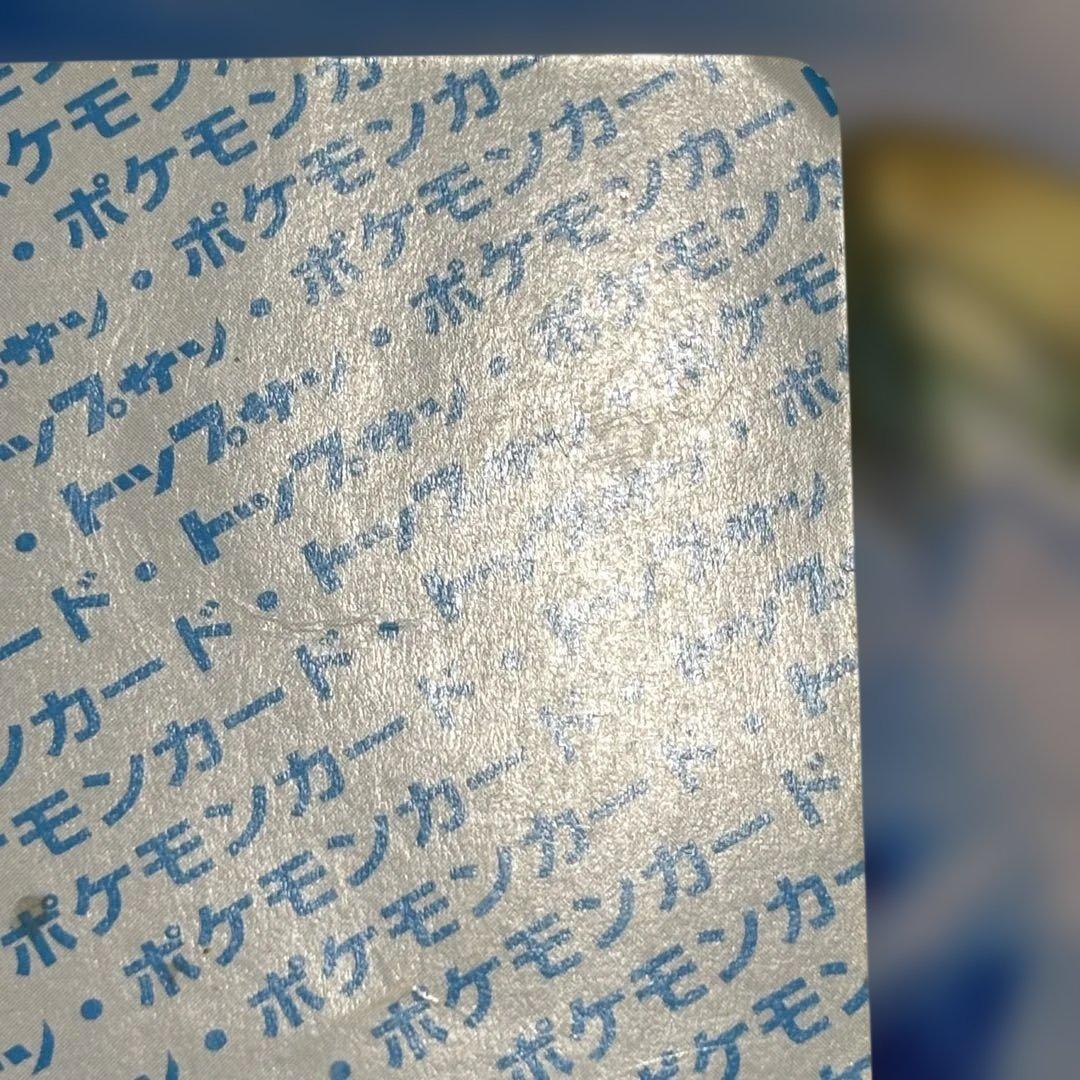 ケモン
・ポケモンカ
サン・ポケモンカー
ップサン・ポケモンカー
・トップサン・ポケモンカー
ード・トップサン・ポケモンカ
ンカード・トップサン・ポケモ
モンカード・トップサン・ポ
ポケモンカード・トップサン
ン・ポケモンカード・トップ
・ポケモンカード・ト
・ポケモンカード
ポケモンカー
ケモン